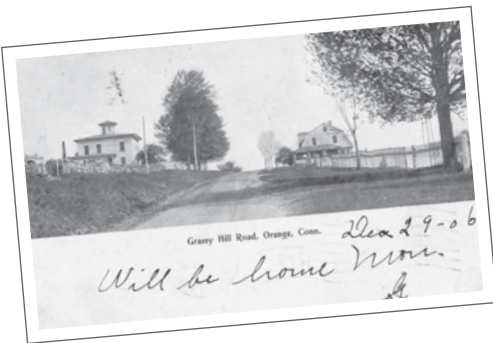 Grassy Hill Road, Orange, Conn.
Dec 29-06
Will be home Mon.